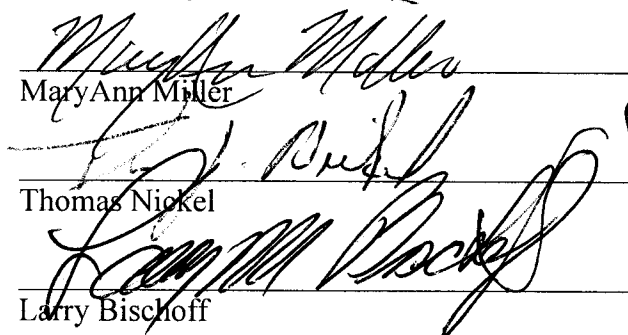 MaryAnn Miller
MaryAnn Miller
Nickel
Thomas Nickel
Larry M Bischoff
Larry Bischoff